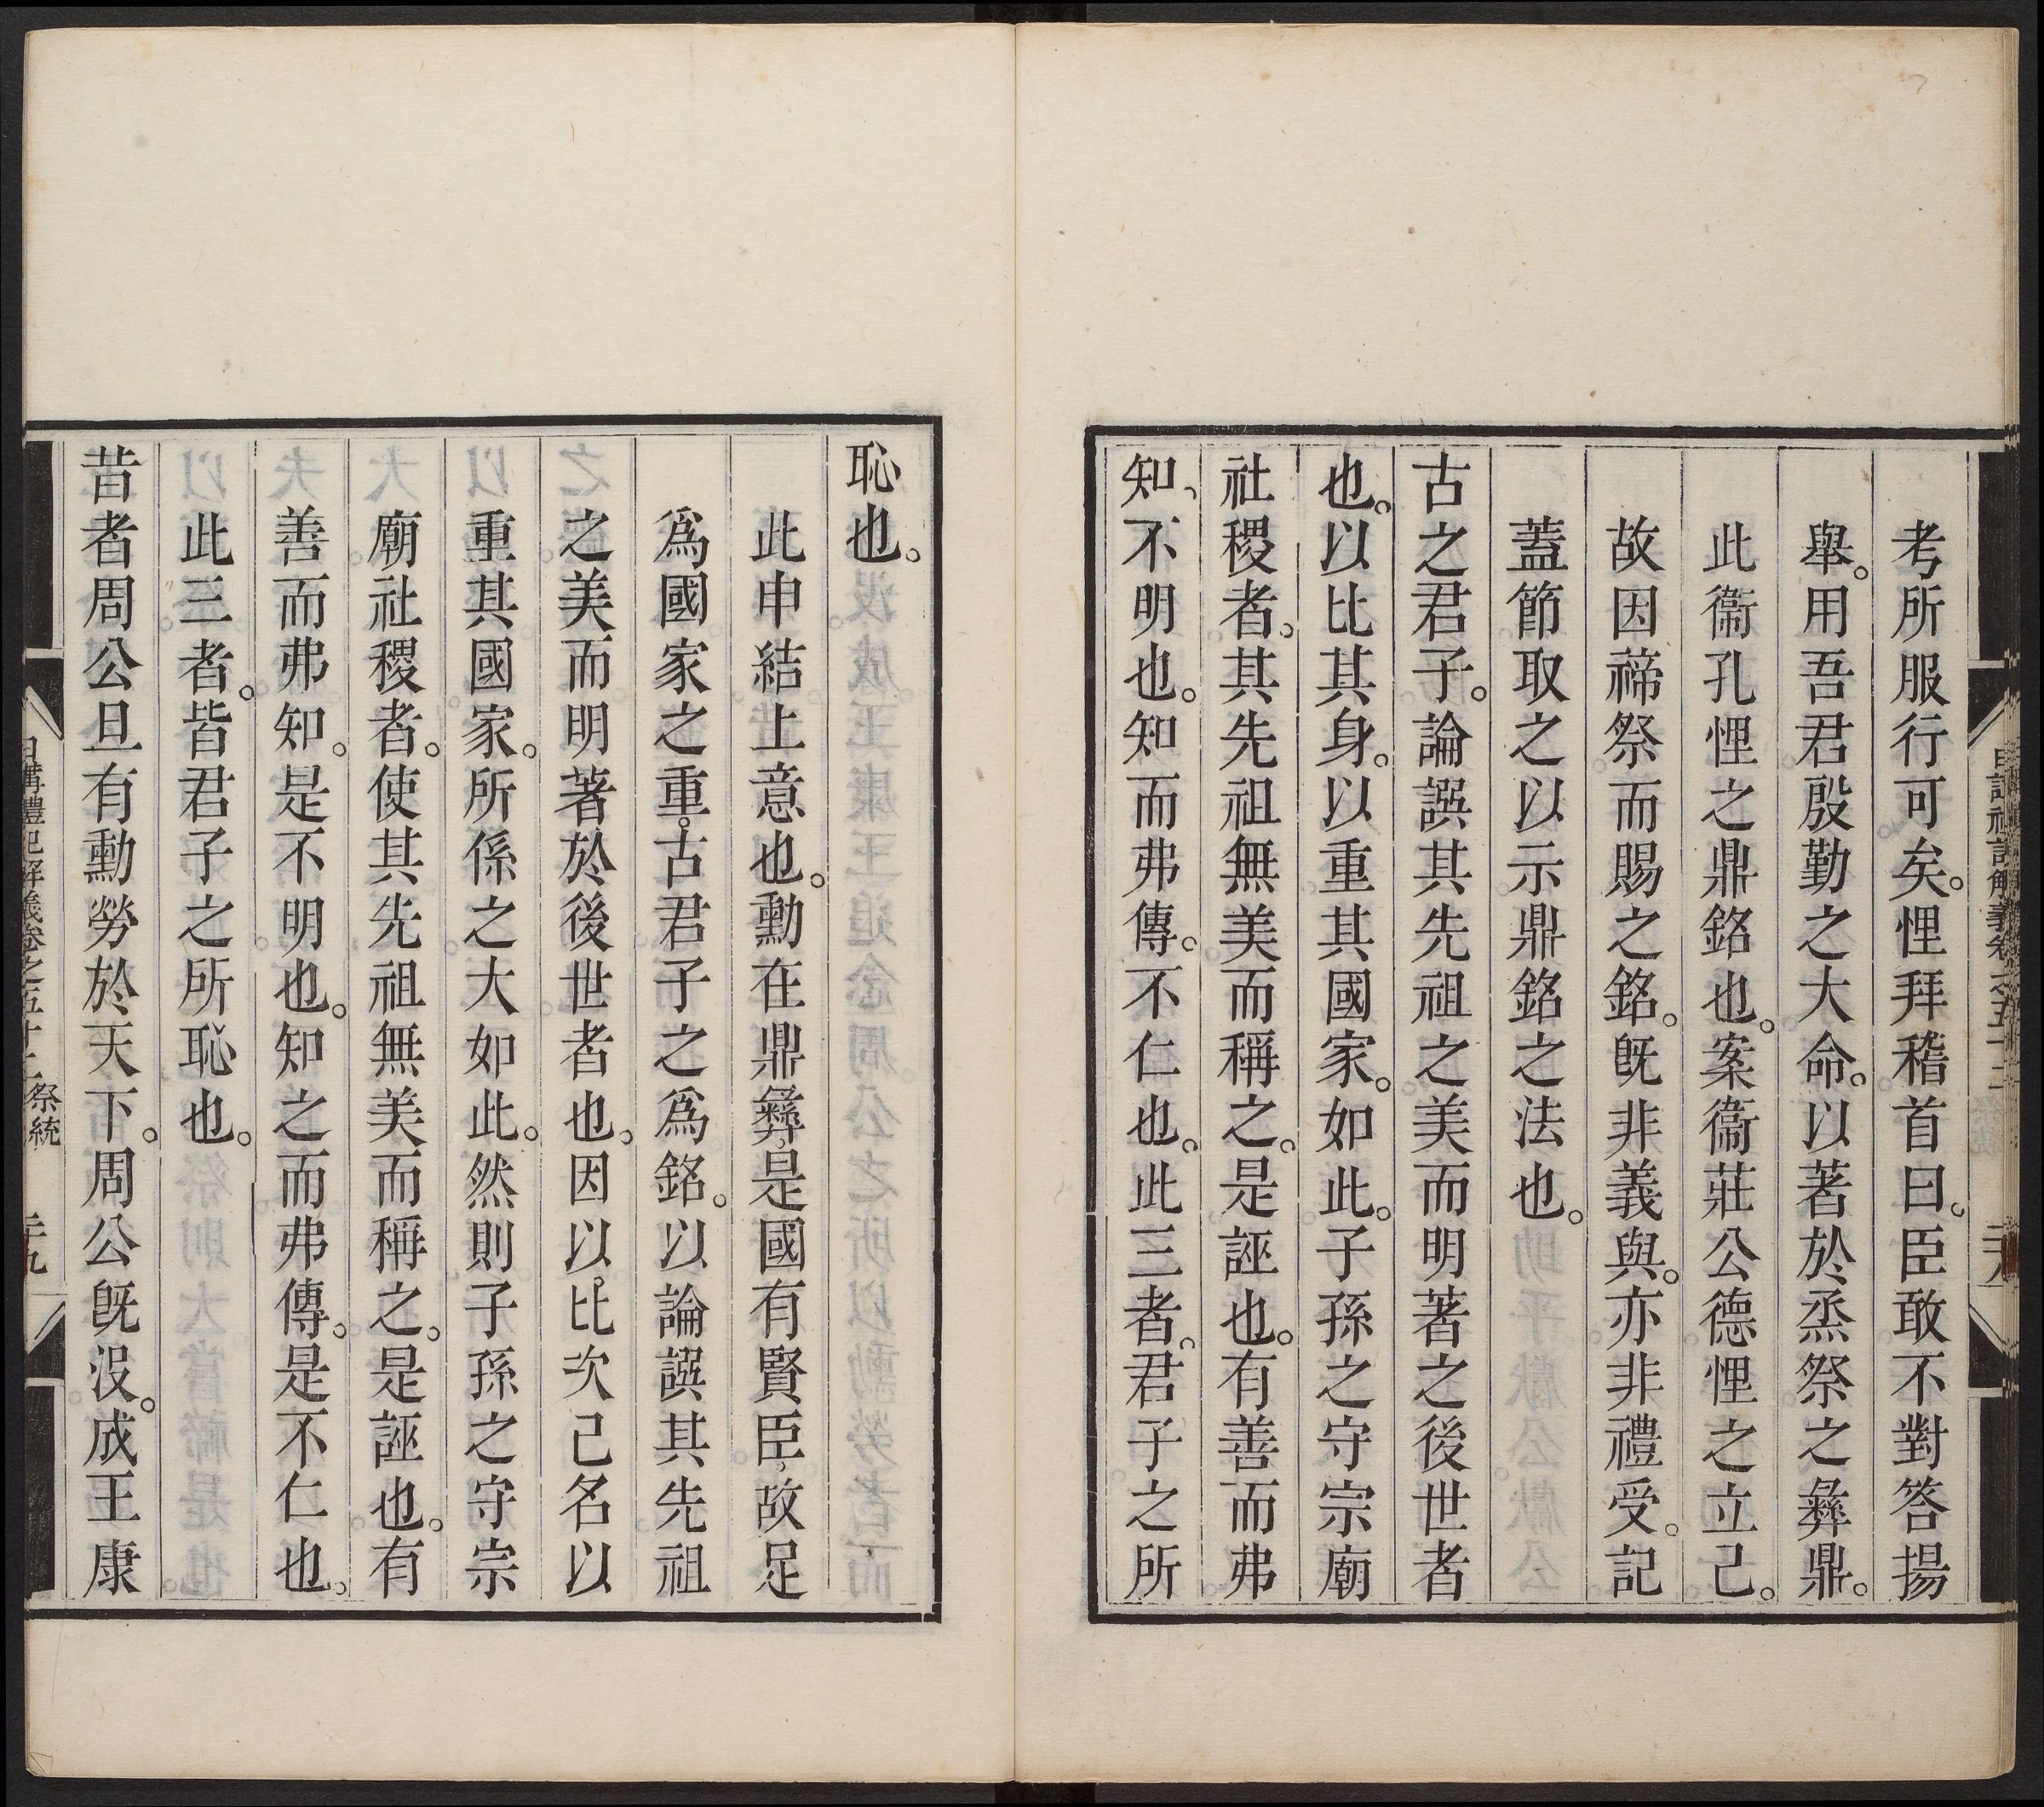 考所服行可矣。悝拜稽首曰。臣敢不對答揚
舉。用吾君殷勤之大命。以著於烝祭之彝鼎。
此衞孔悝之鼎銘也。案衞莊公德悝之立己。
故因禘祭而賜之銘。旣非義與。亦非禮受。記
蓋節取之以示鼎銘之法也。
古之君子。論譔其先祖之美而明著之後世者
也。以比其身。以重其國家。如此。子孫之守宗廟
社稷者。其先祖無美而稱之。是誣也。有善而弗
知、不明也。知而弗傳。不仁也。此三者。君子之所
恥也。
此申結上意也。勳在鼎彝、是國有賢臣、故足
爲國家之重。古君子之爲銘。以論譔其先祖
之美而明著於後世者也。因以比次己名以
重其國家。所係之大如此。然則子孫之守宗
廟社稷者。使其先祖無美而稱之。是誣也。有
善而弗知。是不明也。知之而弗傳。是不仁也。
此三者。皆君子之所恥也。
昔者周公旦有勳勞於天下。周公旣沒。成王康
日講禮記解義卷之五十二 祭統